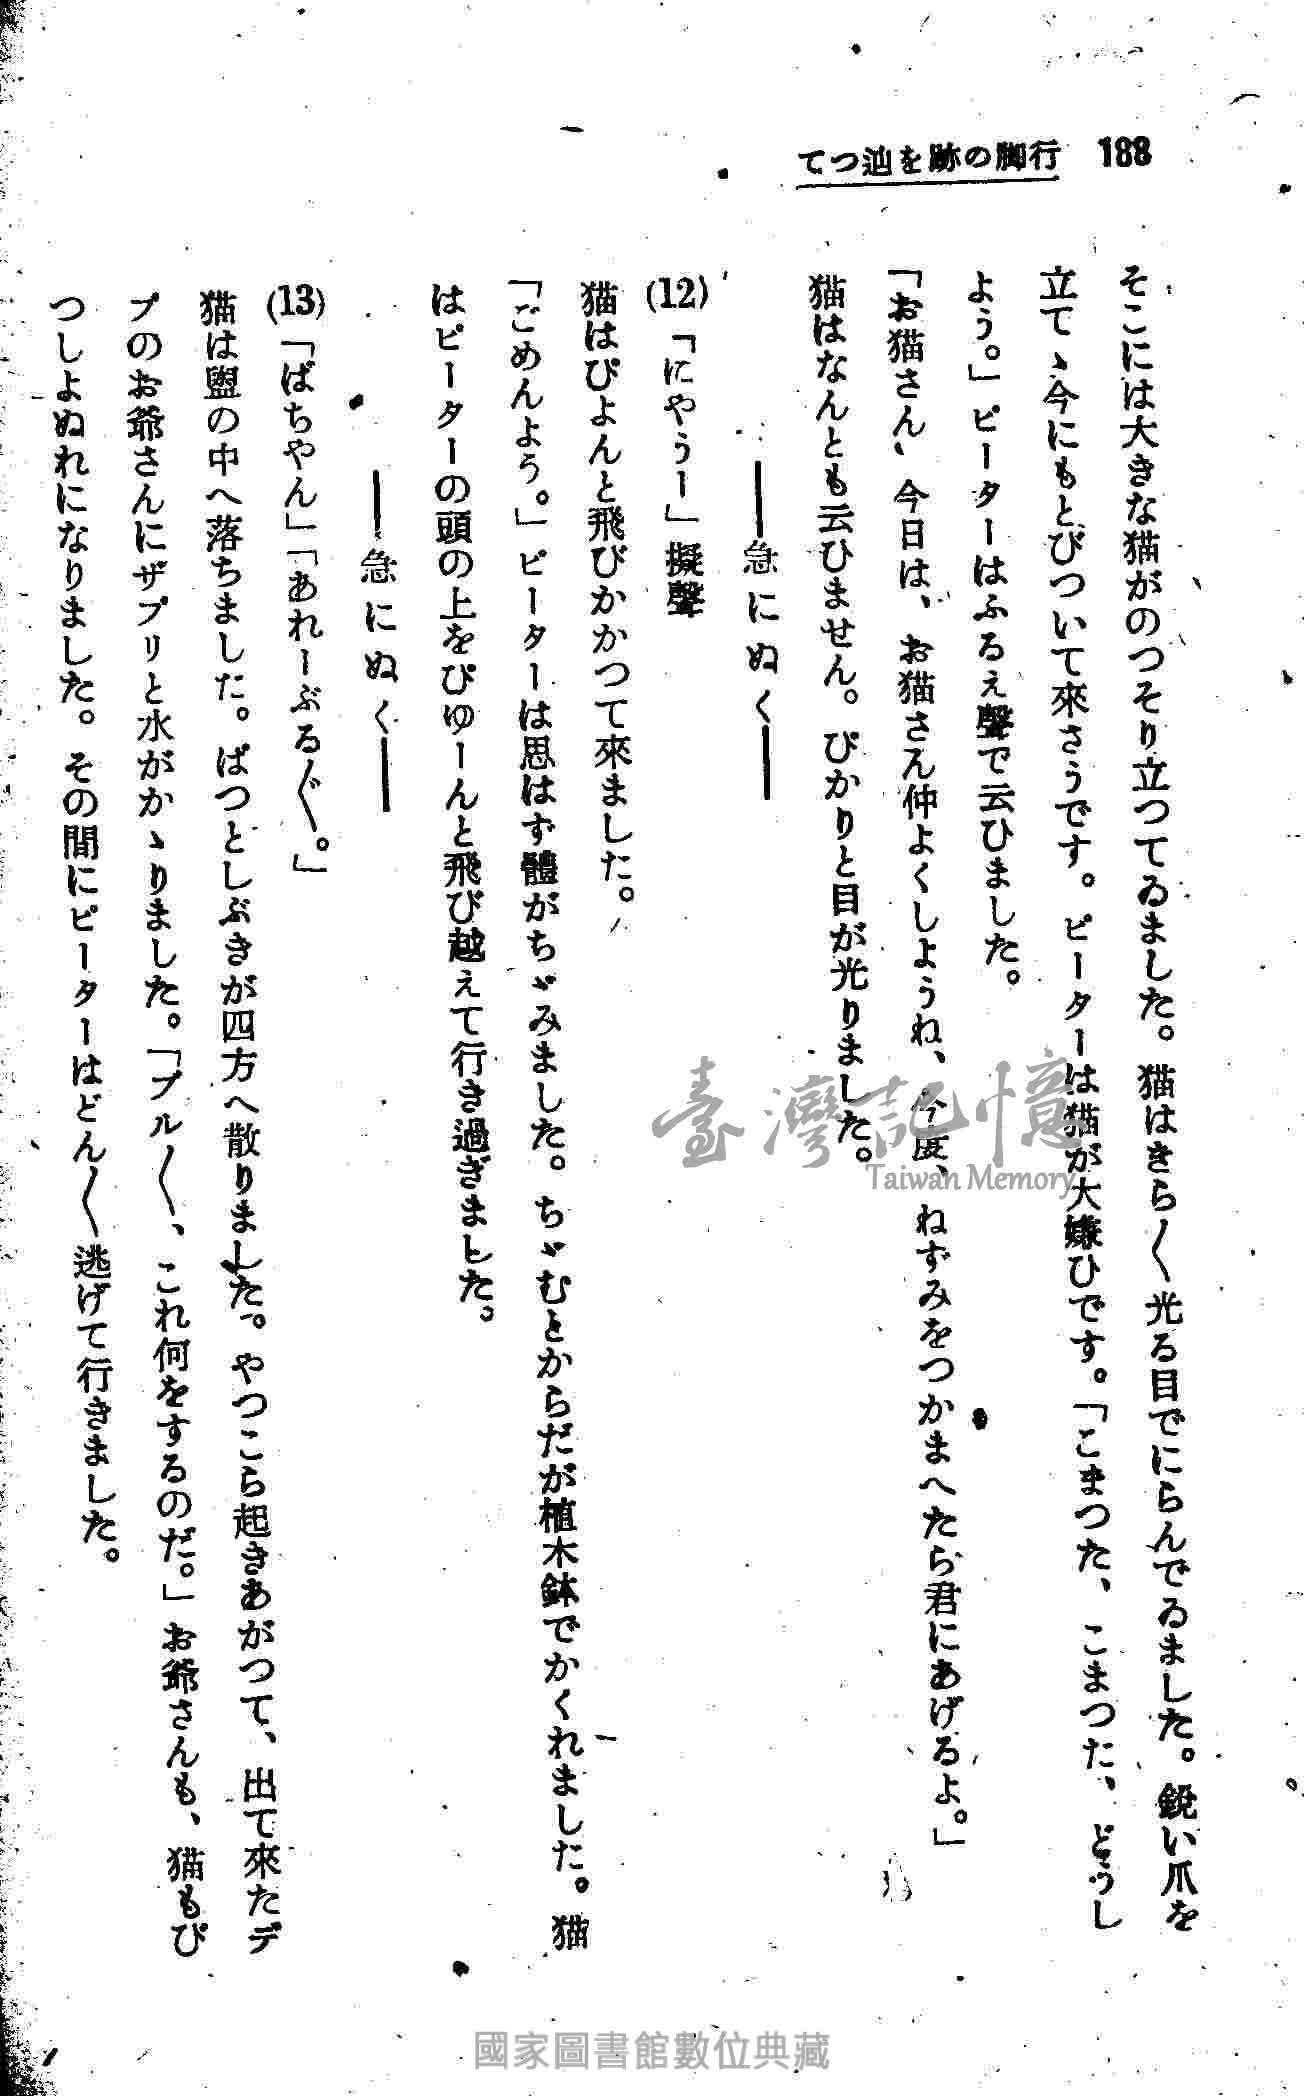 188 行脚の跡を辿つて
そこには大きな猫がのつそり立つてゐました。猫はきら〱光る目でにらんでゐました。鋭い爪を
立てゝ今にもとびついて來さうです。ピーターは猫が大嫌ひです。「こまつた、こまつた、どうし
よう。」ピーターはふるえ聲で云ひました。
「お猫さん、今日は、お猫さん仲よくしようね、今度、ねずみをつかまへたら君にあげるよ。」
猫はなんとも云ひません。ぴかりと目が光りました。
――急にぬく――
(12)「にやうー」擬聲
猫はぴよんと飛びかかつて來ました。
「ごめんよう。」ピーターは思はず體がちゞみました。ちゞむとからだが植木鉢でかくれました。猫
はピーターの頭の上をぴゆーんと飛び越えて行き過ぎました。
――急にぬく――
(13)「ばちやん」「あれーぶる〲。」
猫は盥の中へ落ちました。ぱつとしぶきが四方へ散りました。やつこら起きあがつて、出て來たデ
ブのお爺さんにザブリと水がかゝりました。「ブル〱、これ何をするのだ。」お爺さんも、猫もび
つしよぬれになりました。その間にピーターはどん〱逃げて行きました。
臺灣記憶
Taiwan Memory
國家圖書館數位典藏